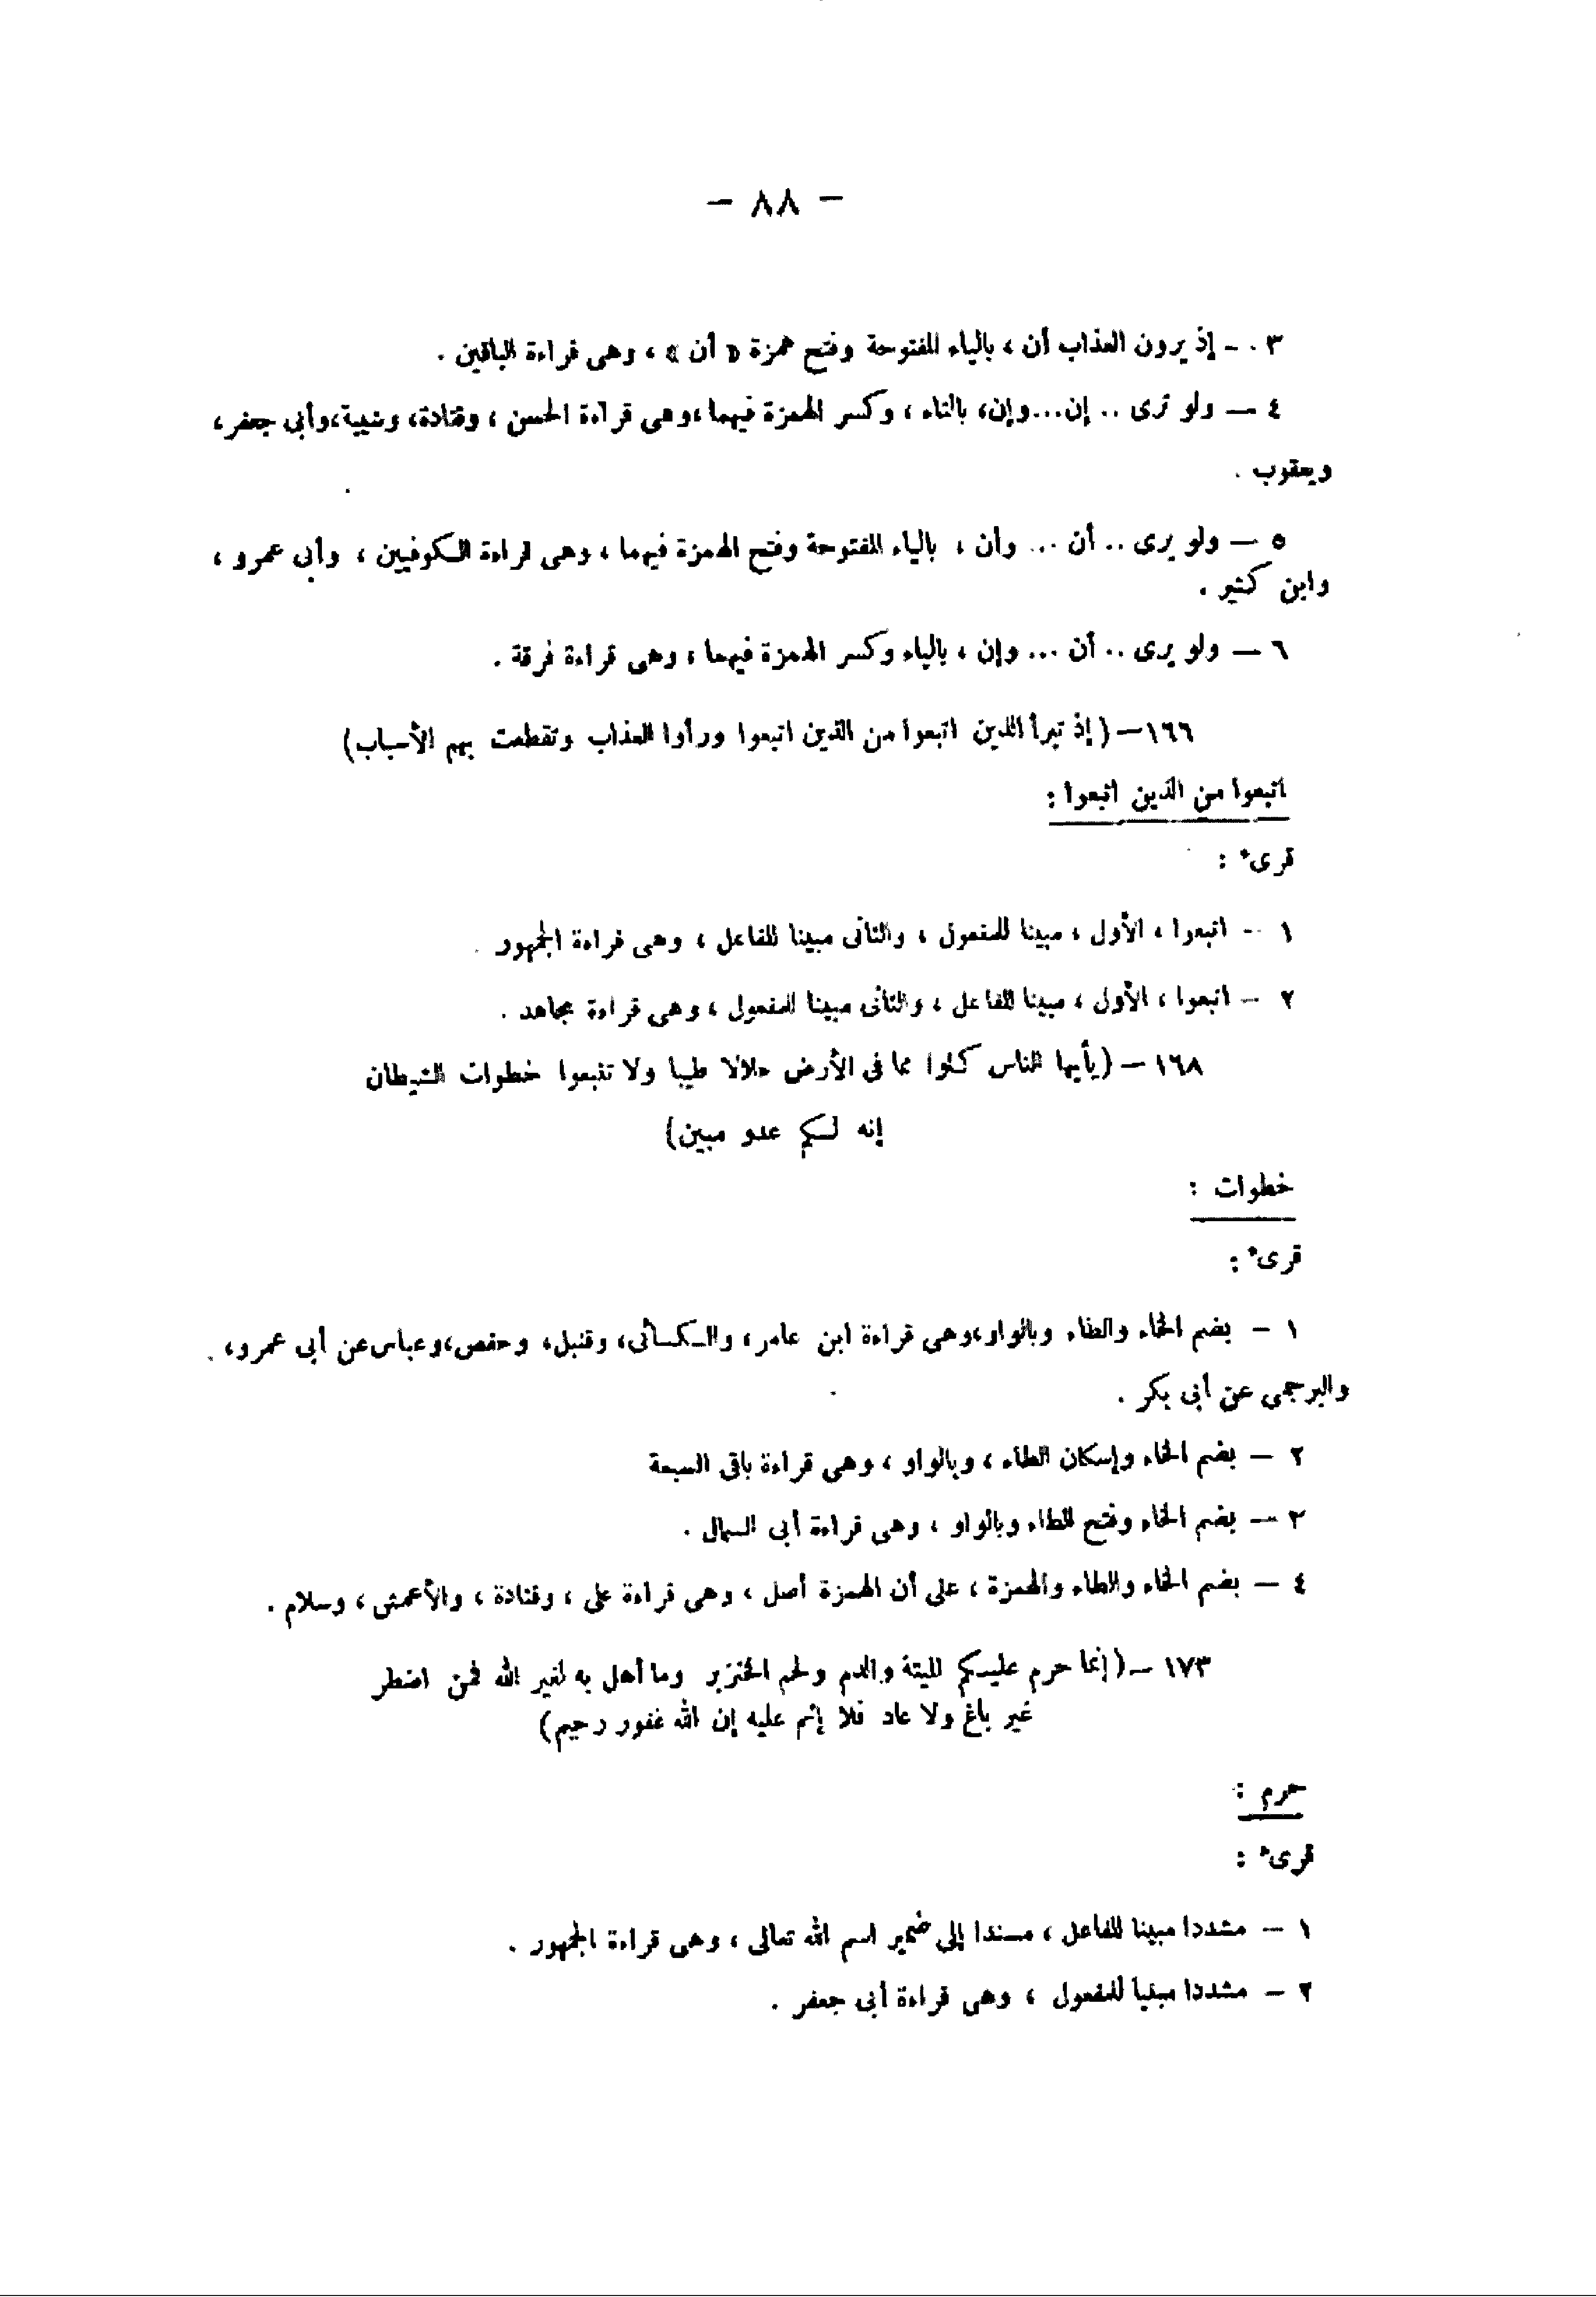 — ٨٨ —
٣ — إذ يرون العذاب أن ، بالياء المفتوحة وفتح همزة « أن » ، وهى قراءة الباقين .
٤ — ولو ترى .. إن...وإن، بالتاء ، وكسر الهمزة فيهما ،وهى قراءة الحسن ، وقتادة، وشيبة،وأبى جعفر،
ويعقوب .
٥ — ولو يرى .. أن ... وأن ، بالياء المفتوحة وفتح الهمزة فيهما ، وهى قراءة الكوفيين ، وأبى عمرو ،
وابن كثير .
٦ — ولو يرى .. أن ... وإن ، بالياء وكسر الهمزة فيهما ، وهى قراءة فرقة .
١٦٦— ( إذ تبرأ الذين اتبعوا من الذين اتبعوا ورأوا العذاب وتقطعت بهم الأسباب)
اتبعوا من الذين اتبعوا :
قرىء :
١ — اتبعوا ، الأول ، مبينا للمفعول ، والثانى مبينا للفاعل ، وهى قراءة الجمهور .
٢ — اتبعوا ، الأول ، مبينا للفاعل ، والثانى مبينا للمفعول ، وهى قراءة مجاهد .
١٦٨ — (يأيها الناس كلوا مما فى الأرض حلالا طيبا ولا تتبعوا خطوات الشيطان
إنه لكم عدو مبين)
خطوات :
قرىء :
١ — بضم الخاء والطاء وبالواو،وهى قراءة ابن عامر، والكسائى، وقنبل، وحفص،وعباس عن أبى عمرو،
والبرجمى عن أبى بكر .
٢ — بضم الخاء وإسكان الطاء ، وبالواو ، وهى قراءة باقى السبعة
٣ — بضم الخاء وفتح الطاء وبالواو ، وهى قراءة أبى السمال .
٤ — بضم الخاء والطاء والهمزة ، على أن الهمزة أصل ، وهى قراءة على ، وقتادة ، والأعمش ، وسلام .
١٧٣ — ( إنما حرم عليكم الميتة والدم ولحم الخنزير وما أهل به لغير الله فمن اضطر
غير باغ ولا عاد فلا إثم عليه إن الله غفور رحيم)
حرم :
قرىء :
١ — مشددا مبينا للفاعل ، مسندا إلى ضمير اسم الله تعالى ، وهى قراءة الجمهور .
٢ — مشددا مبنيا للمفعول ، وهى قراءة أبى جعفر .